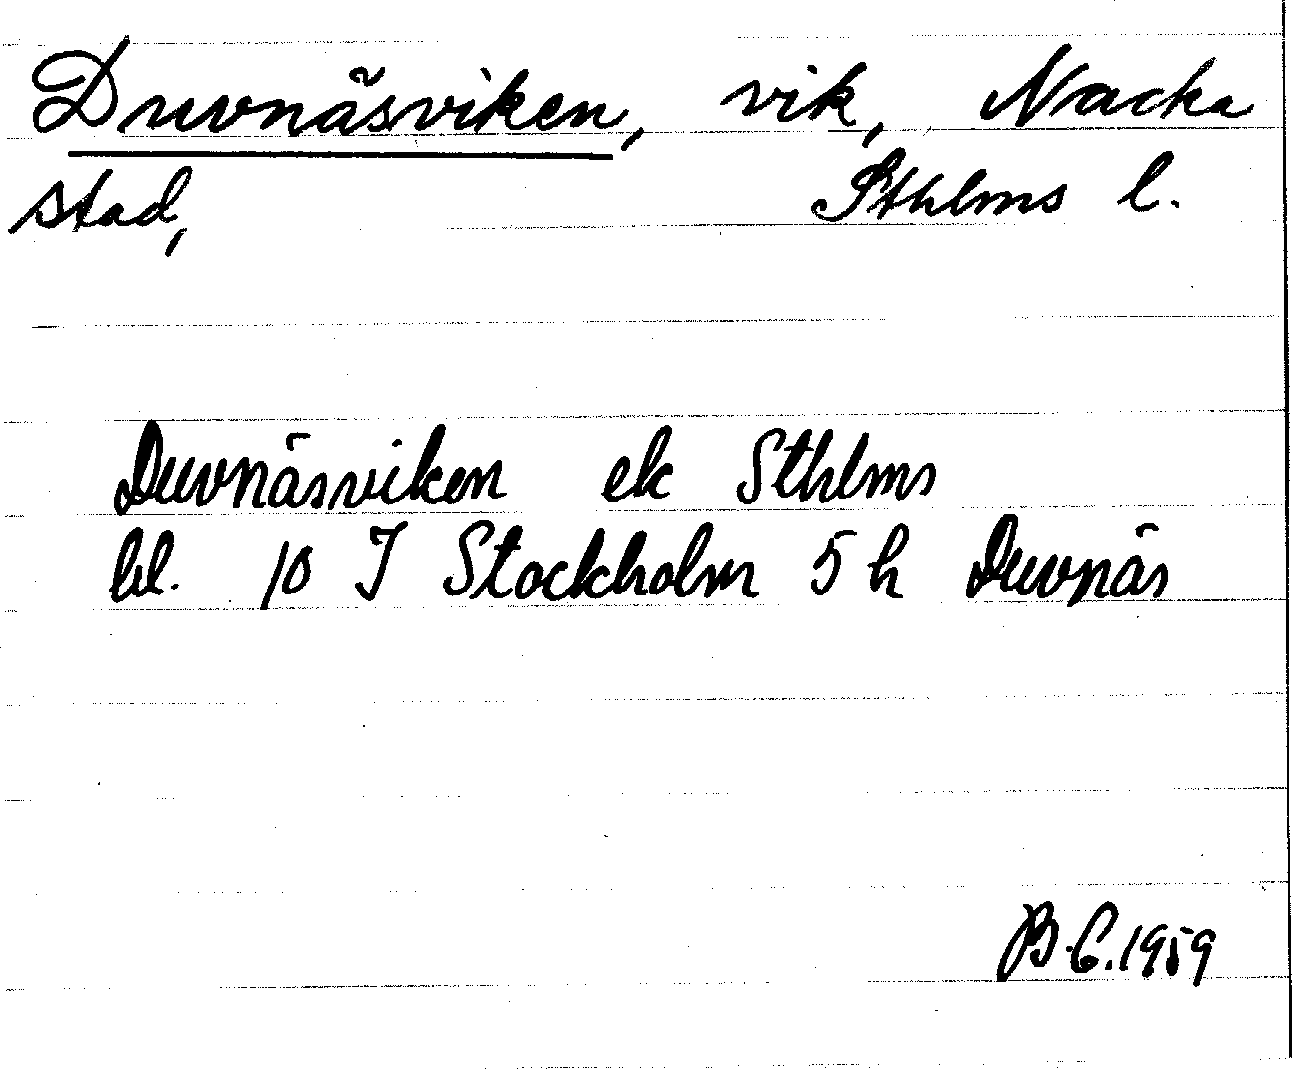 Duvnäsviken, vik, Nacka
stad, Sthlms l.
Duvnäsviken ek Sthlms
bl. 10 I Stockholm 5 h Duvnäs
B.C. 1959